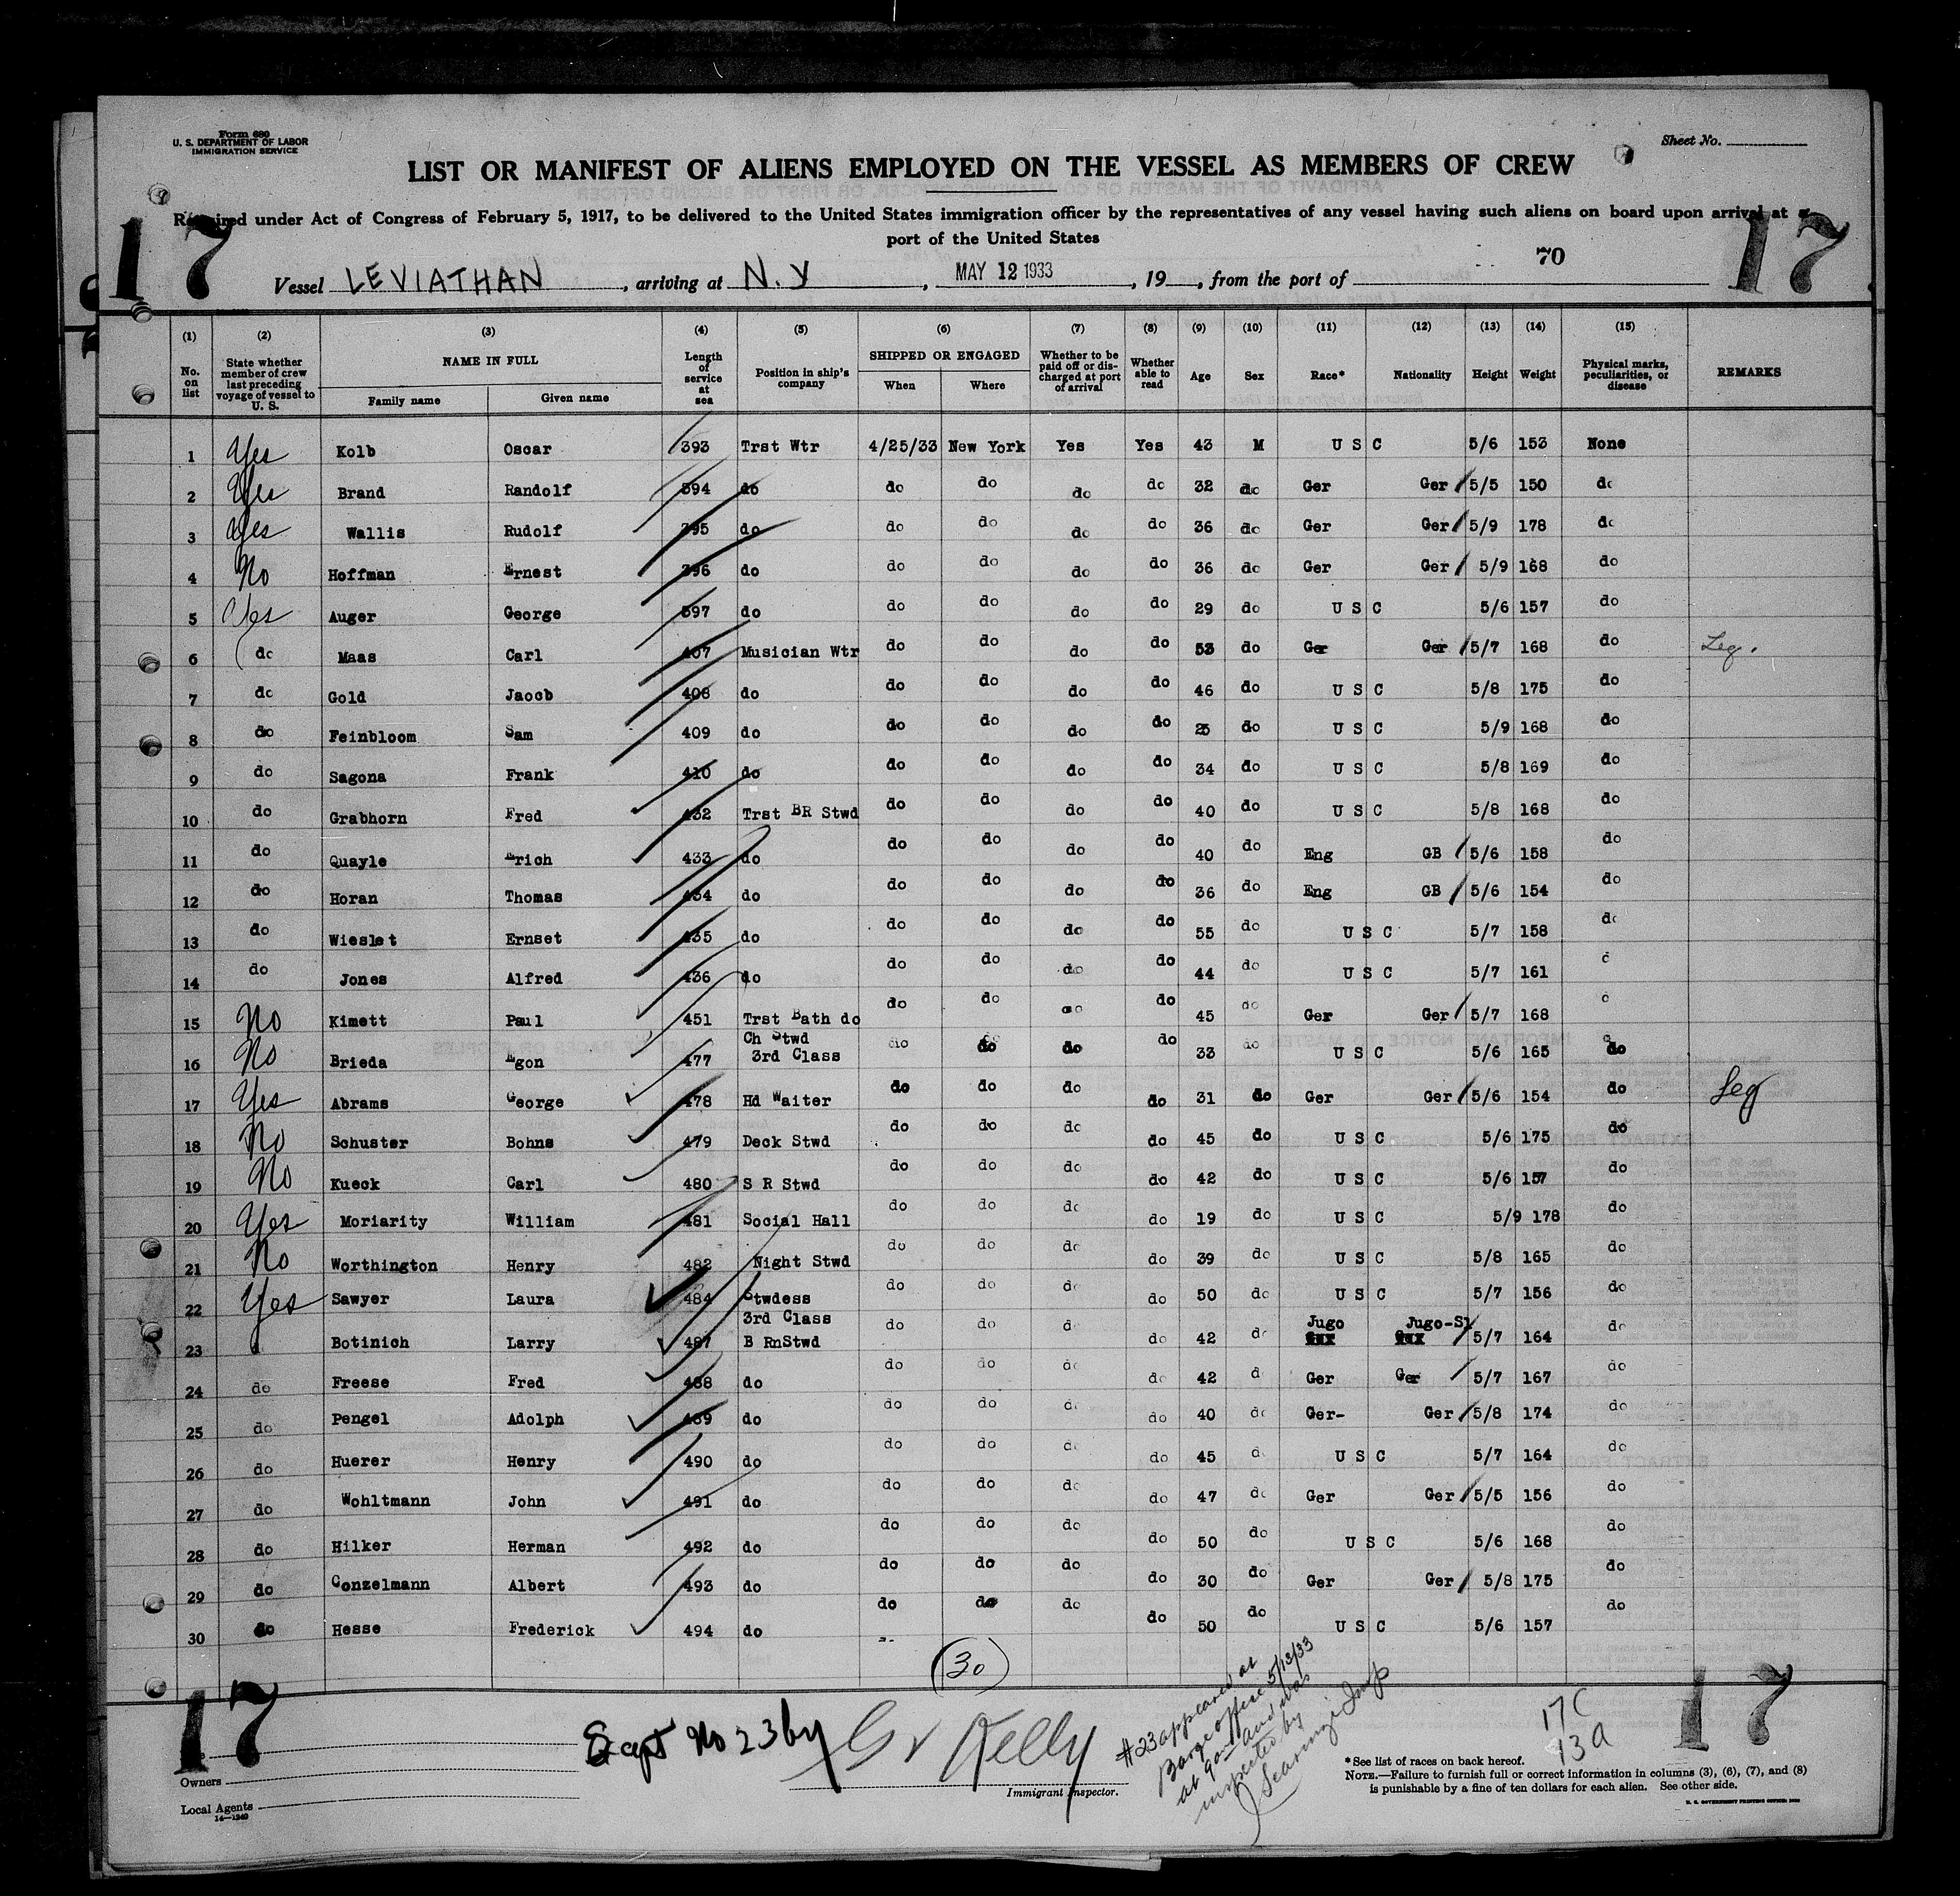 Form 680
U. S. DEPARTMENT OF LABOR
IMMIGRATION SERVICE
Sheet No.
LIST OR MANIFEST OF ALIENS EMPLOYED ON THE VESSEL AS MEMBERS OF CREW
Required under Act of Congress of February 5, 1917, to be delivered to the United States immigration officer by the representatives of any vessel having such aliens on board upon arrival at a
port of the United States
17 17
70
Vessel LEVIATHAN, arriving at N.Y, MAY 12 1933, 19, from the port of
(1) (2) (3) (4) (5) (6) (7) (8) (9) (10) (11) (12) (13) (14) (15)
No. on list State whether member of crew last preceding voyage of vessel to U. S. NAME IN FULL Family name Given name Length of service at sea Position in ship's company SHIPPED OR ENGAGED When Where Whether to be paid off or discharged at port of arrival Whether able to read Age Sex Race* Nationality Height Weight Physical marks, peculiarities, or disease REMARKS
1 Yes Kolb Oscar 393 Trst Wtr 4/25/33 New York Yes Yes 43 M U S C 5/6 153 None
2 Yes Brand Randolf 394 do do do do do 32 do Ger Ger 5/5 150 do
3 Yes Wallis Rudolf 395 do do do do do 36 do Ger Ger 5/9 178 do
4 No Hoffman Ernest 396 do do do do do 36 do Ger Ger 5/9 168 do
5 Yes Auger George 397 do do do do do 29 do U S C 5/6 157 do
6 do Maas Carl 407 Musician Wtr do do do do 53 do Ger Ger 5/7 168 do Leg.
7 do Gold Jaocb 408 do do do do do 46 do U S C 5/8 175 do
8 do Feinbloom Sam 409 do do do do do 25 do U S C 5/9 168 do
9 do Sagona Frank 410 do do do do do 34 do U S C 5/8 169 do
10 do Grabhorn Fred 432 Trst BR Stwd do do do do 40 do U S C 5/8 168 do
11 do Quayle Erich 433 do do do do do 40 do Eng GB 5/6 158 do
12 do Horan Thomas 434 do do do do do 36 do Eng GB 5/6 154 do
13 do Wieslet Ernset 435 do do do do do 55 do U S C 5/7 158 do
14 do Jones Alfred 436 do do do do do 44 do U S C 5/7 161
15 No Kimett Paul 451 Trst Bath do do do do do 45 do Ger Ger 5/7 168
16 No Brieda Egon 477 Ch Stwd 3rd Class do do do do 33 do U S C 5/6 165 do
17 Yes Abrams George 478 Hd Waiter do do do do 31 do Ger Ger 5/6 154 do Leg
18 No Schuster Bohns 479 Deck Stwd do do do do 45 do U S C 5/6 175 do
19 No Kueck Carl 480 S R Stwd do do do do 42 do U S C 5/6 157 do
20 Yes Moriarity William 481 Social Hall do do do do 19 do U S C 5/9 178 do
21 No Worthington Henry 482 Night Stwd do do do do 39 do U S C 5/8 165 do
22 Yes Sawyer Laura 484 Stwdess do do do do 50 do U S C 5/7 156 do
23 Botinich Larry 487 3rd Class B RmStwd do do do do 42 do Jugo Jugo-Sl 5/7 164 do
24 do Freese Fred 488 do do do do do 42 do Ger Ger 5/7 167 do
25 do Pengel Adolph 489 do do do do do 40 do Ger- Ger 5/8 174 do
26 do Huerer Henry 490 do do do do do 45 do U S C 5/7 164 do
27 do Wohltmann John 491 do do do do do 47 do Ger Ger 5/5 156 do
28 do Hilker Herman 492 do do do do do 50 do U S C 5/6 168 do
29 do Gonzelmann Albert 493 do do do do do 30 do Ger Ger 5/8 175 do
30 do Hesse Frederick 494 do do do do do 50 do U S C 5/6 157 do
(30)
17 17
Except No 23 by G V Kelly
Immigrant Inspector.
#23 appeared at
Barge office 5/13/33
at 9 am and was
inspected by
Insp
17C
13A
Owners
Local Agents
14—1240
*See list of races on back hereof.
NOTE.—Failure to furnish full or correct information in columns (3), (6), (7), and (8)
is punishable by a fine of ten dollars for each alien. See other side.